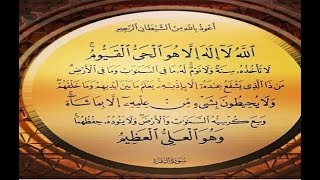 أعوذ بالله من الشيطان الرجيم
اللَّهُ لَا إِلَٰهَ إِلَّا هُوَ الْحَيُّ الْقَيُّومُ ۚ
لَا تَأْخُذُهُ سِنَةٌ وَلَا نَوْمٌ لَّهُ مَا فِي السَّمَاوَاتِ وَمَا فِي الْأَرْضِ
مَن ذَا الَّذِي يَشْفَعُ عِندَهُ إِلَّا بِإِذْنِهِ يَعْلَمُ مَا بَيْنَ أَيْدِيهِمْ وَمَا خَلْفَهُمْ
وَلَا يُحِيطُونَ بِشَيْءٍ مِّنْ عِلْمِهِ إِلَّا بِمَا شَاءَ
وَسِعَ كُرْسِيُّهُ السَّمَاوَاتِ وَالْأَرْضَ وَلَا يَئُودُهُ حِفْظُهُمَا
وَهُوَ الْعَلِيُّ الْعَظِيمُ
سورة البقرة